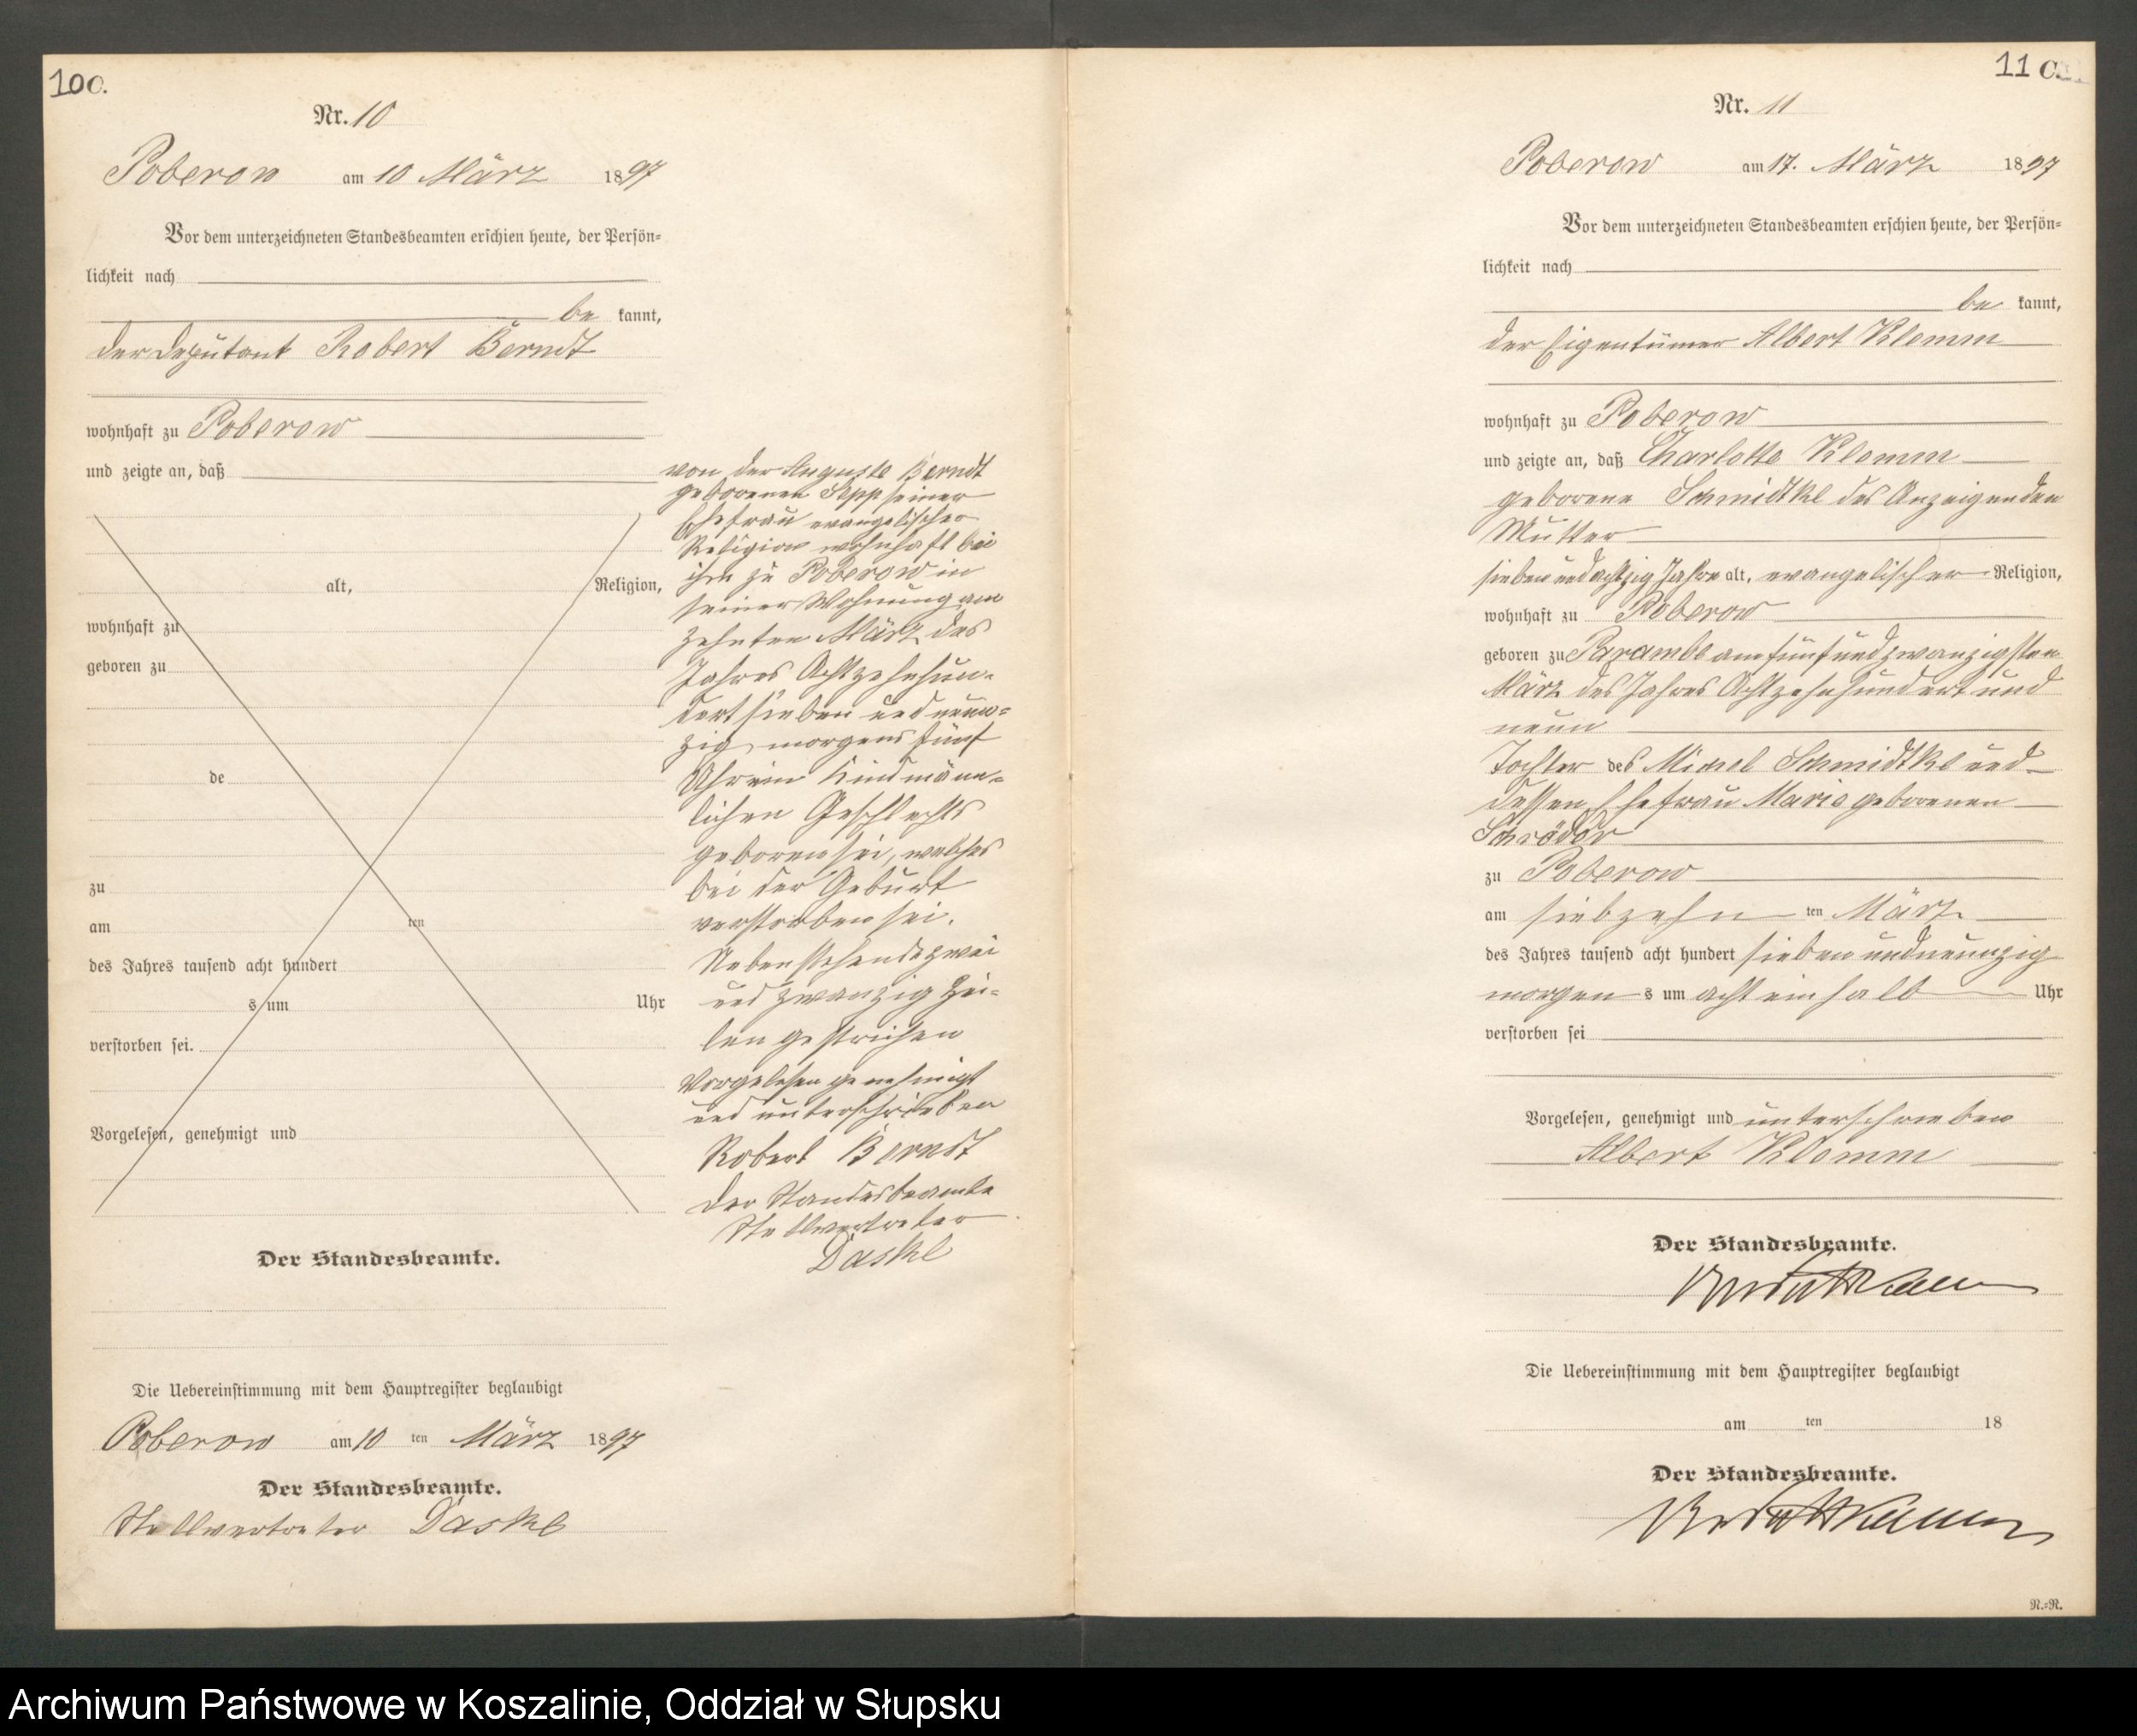 100.
Nr. 10
Poberow am 10 März 1897
Vor dem unterzeichneten Standesbeamten erschien heute, der Persön=
lichkeit nach
be kannt,
der Deputant Robert Berndt
wohnhaft zu Poberow
und zeigte an, daß
alt, Religion,
wohnhaft zu
geboren zu
de
zu
am ten
des Jahres tausend acht hundert
s um Uhr
verstorben sei.
Vorgelesen, genehmigt und
Der Standesbeamte.
Die Uebereinstimmung mit dem Hauptregister beglaubigt
Poberow am 10 ten März 1897
Der Standesbeamte.
Stellvertreter Daske
von der Auguste Berndt
geborenen Sepp seiner
Ehefrau evangelischer
Religion wohnhaft bei
ihm zu Poberow in
seiner Wohnung am
zehnten März des
Jahres Achtzehnhun=
dert sieben und neun=
zig morgens fünf
Uhr ein Kind männ=
lichen Geschlechts
geboren sei, welches
bei der Geburt
verstorben sei.
Nebenstehende zwei
und zwanzig Zei=
len gestrichen
Vorgelesen genehmigt
und unterschrieben
Robert Berndt
Der Standesbeamte
Stellvertreter
Daske
11 C.
Nr. 11
Poberow am 17. März 1897
Vor dem unterzeichneten Standesbeamten erschien heute, der Persön=
lichkeit nach
be kannt,
der Eigentümer Albert Klemm
wohnhaft zu Poberow
und zeigte an, daß Charlotte Klemm
geborene Schmidtke des Anzeigenden
Mutter
sieben und achtzig Jahre alt, evangelischer Religion,
wohnhaft zu Poberow
geboren zu am fünfundzwanzigsten
März des Jahres Achtzehnhundert und
neun
Tochter des Michel Schmidtke und
dessen Ehefrau Marie geborenen
Schröder
zu Poberow
am siebzehn ten März
des Jahres tausend acht hundert sieben und neunzig
morgen s um acht ein halb Uhr
verstorben sei
Vorgelesen, genehmigt und unterschrieben
Albert Klemm
Der Standesbeamte.
Die Uebereinstimmung mit dem Hauptregister beglaubigt
am ten 18
Der Standesbeamte.
N.=N.
Archiwum Państwowe w Koszalinie, Oddział w Słupsku